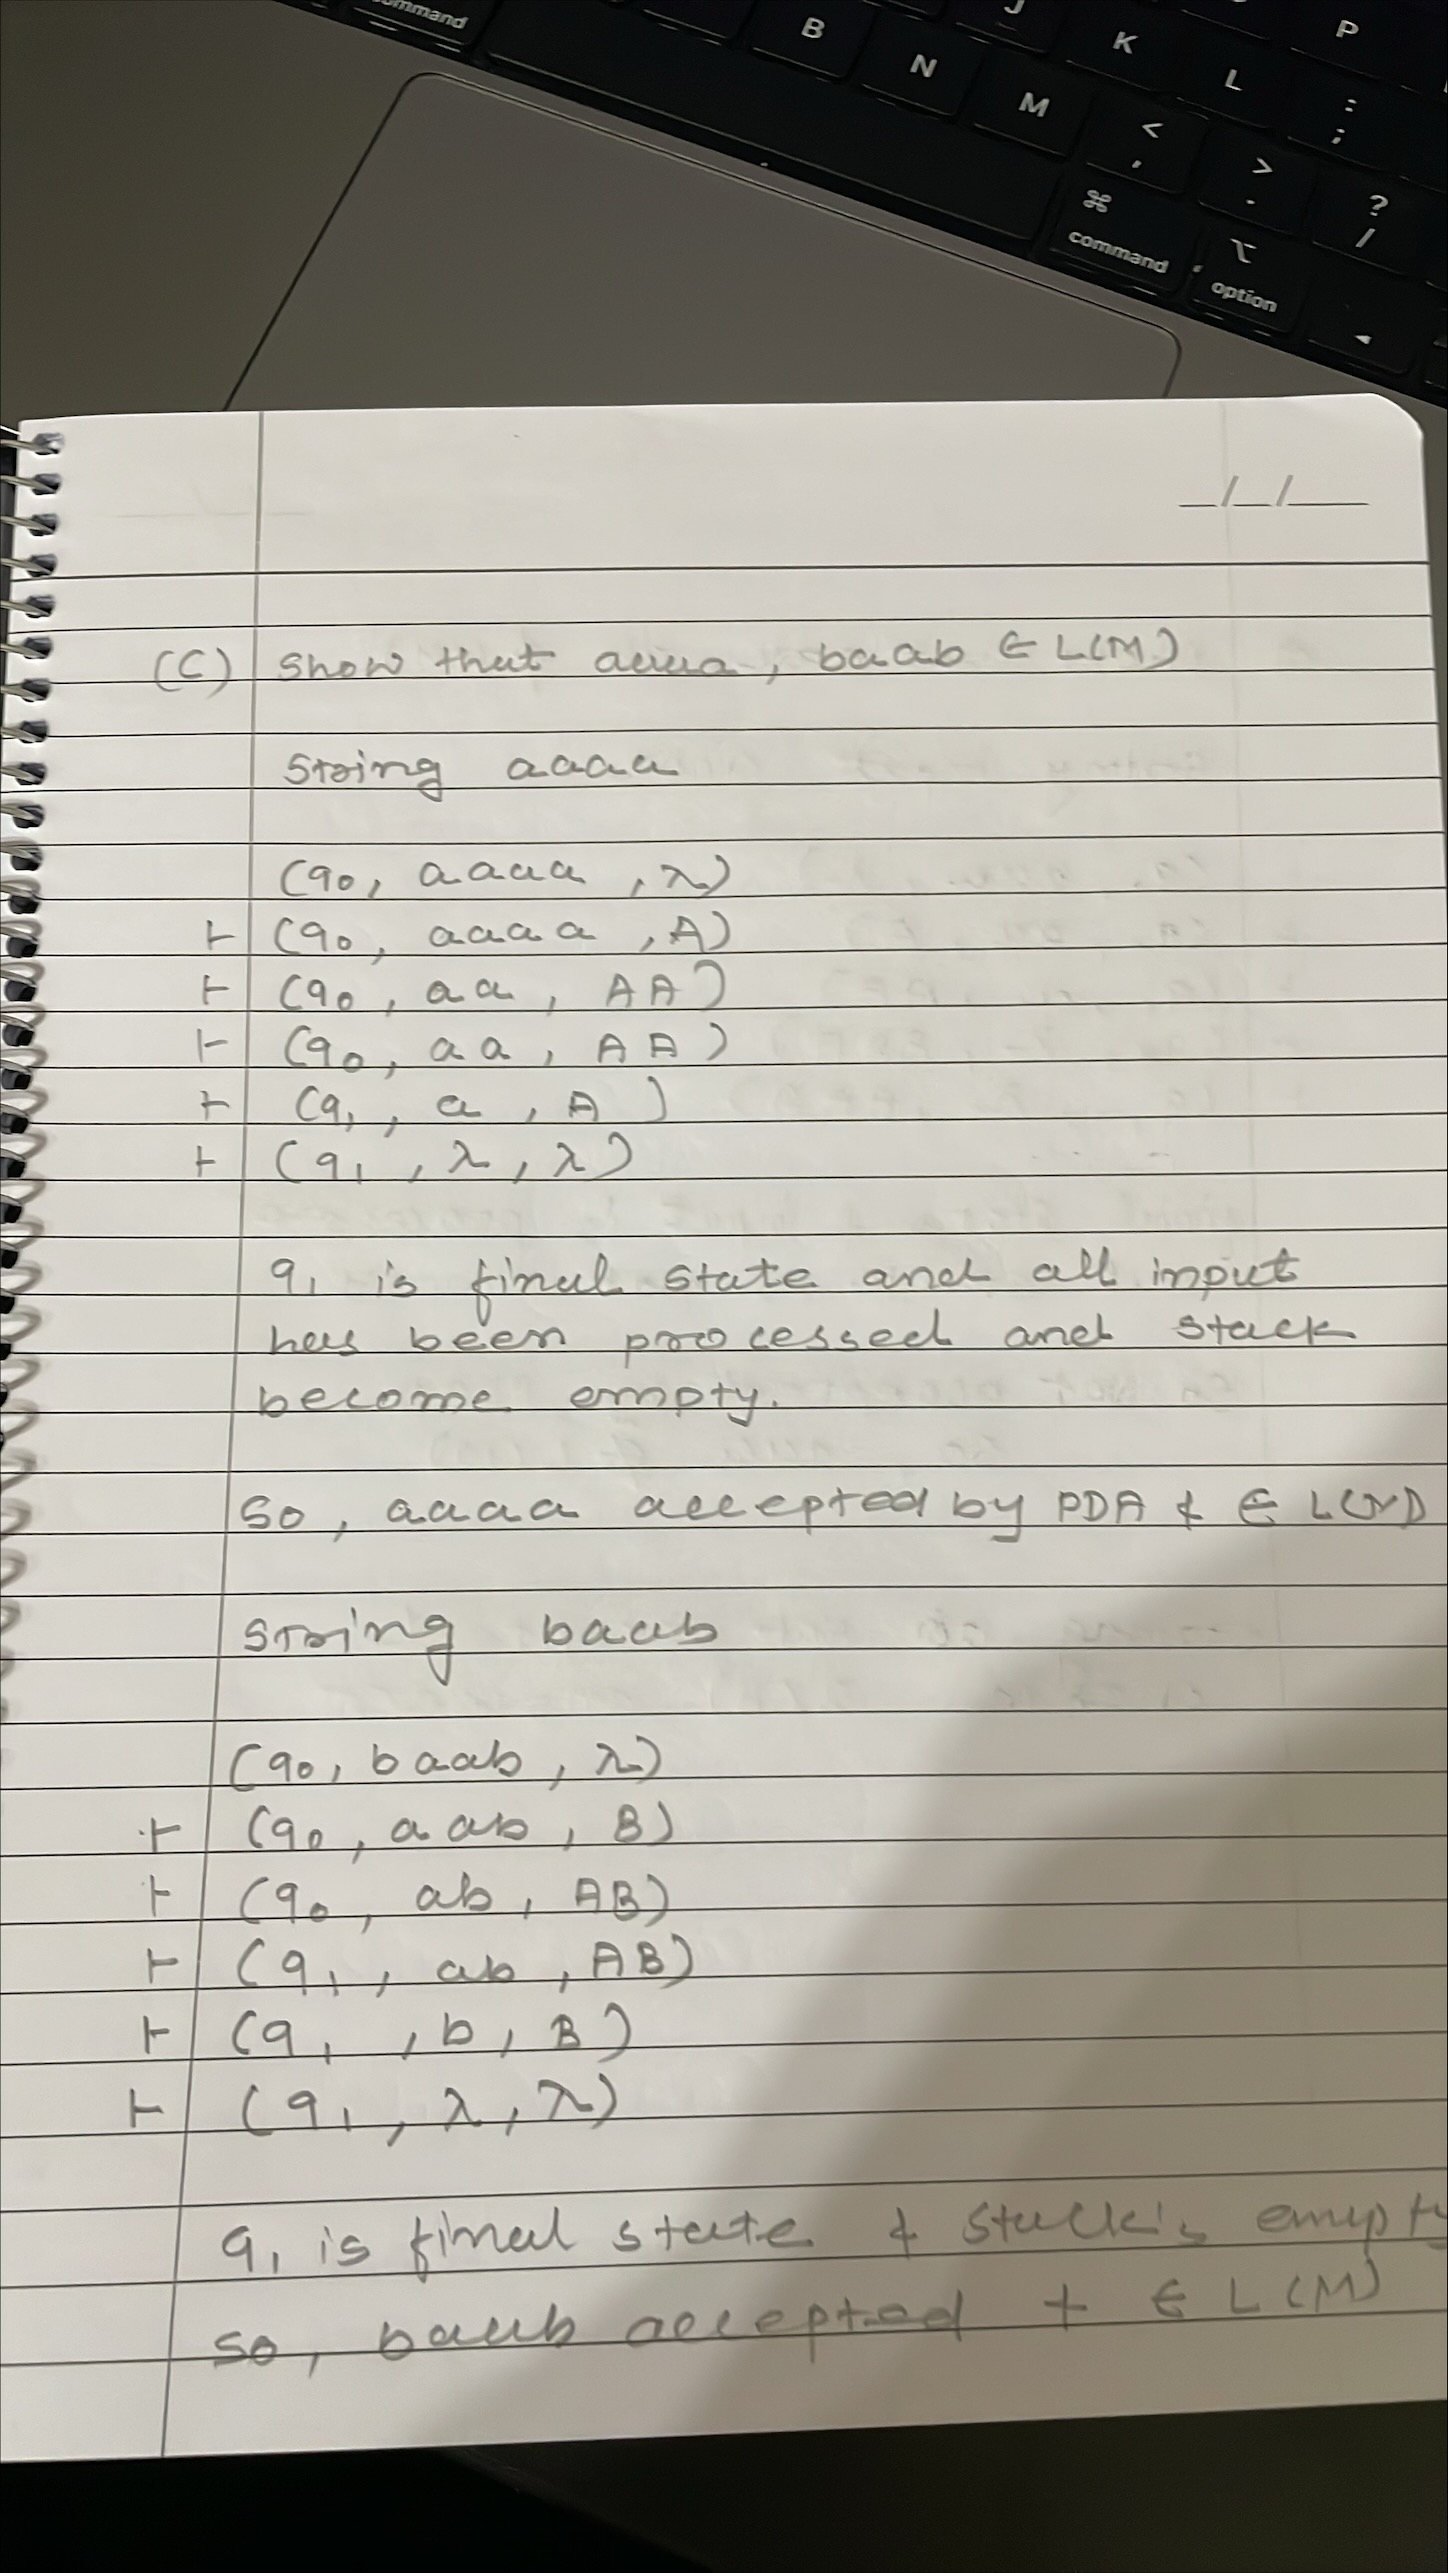 command
B
N
M
J
K
L
P
:
;
<
,
>
.
?
/
⌘
command
⌥
option
_/_/__
(C) Show that aaaa, baab ∈ L(M)
String aaaa
(q0, aaaa, λ)
⊢ (q0, aaaa, A)
⊢ (q0, aa, AA)
⊢ (q0, aa, AA)
⊢ (q1, a, A)
⊢ (q1, λ, λ)
q1 is final state and all input
has been processed and stack
become empty.
So, aaaa accepted by PDA & ∈ L(M)
String baab
(q0, baab, λ)
⊢ (q0, aab, B)
⊢ (q0, ab, AB)
⊢ (q1, ab, AB)
⊢ (q1, b, B)
⊢ (q1, λ, λ)
q1 is final state & stack is empty
so, baab accepted + ∈ L(M)